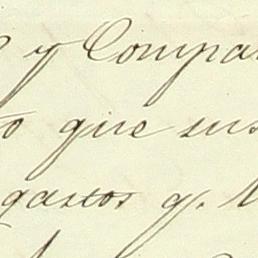 y Compa
o que sus
gastos q.